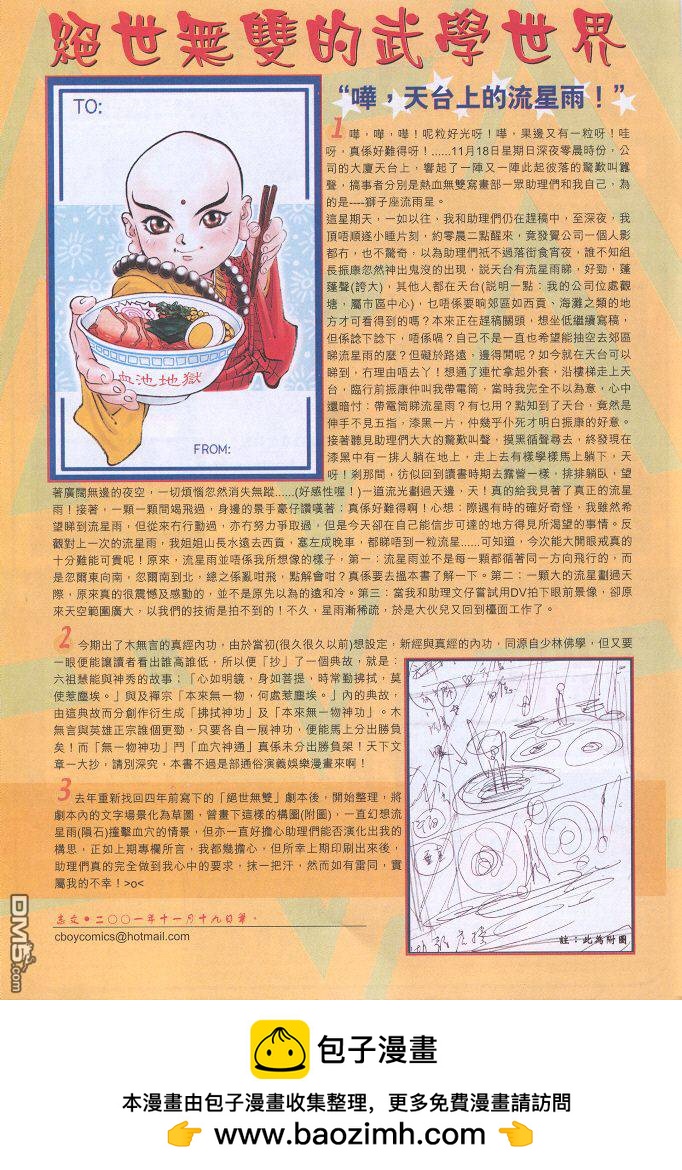 絕世無雙的武學世界
TO:
血池地獄
FROM:
“嘩，天台上的流星雨！”
1 嘩，嘩，嘩！呢粒好光呀！嘩，果邊又有一粒呀！哇
呀，真係好難得呀！......11月18日星期日深夜零晨時份，公
司的大廈天台上，響起了一陣又一陣此起彼落的驚歎叫囂
聲，搞事者分別是熱血無雙寫畫部一眾助理們和我自己，為
的是----獅子座流雨星。
這星期天，一如以往，我和助理們仍在趕稿中，至深夜，我
頂唔順遂小睡片刻，約零晨二點醒來，竟發覺公司一個人影
都冇，也不驚奇，以為助理們衹不過落街食宵夜，誰不知組
長振康忽然神出鬼沒的出現，説天台有流星雨睇，好勁，蓬
蓬聲(誇大)，其他人都在天台(説明一點：我的公司位處觀
塘，屬市區中心)，乜唔係要晌郊區如西貢、海灘之類的地
方才可看得到的嗎？本來正在趕稿關頭，想坐低繼續寫稿，
但係諗下諗下，唔係喎？自己不是一直也希望能抽空去郊區
睇流星雨的麼？但礙於路遠，邊得閒呢？如今就在天台可以
睇到，冇理由唔去丫！想通了連忙拿起外套，沿樓梯走上天
台，臨行前振康仲叫我帶電筒，當時我完全不以為意，心中
還暗忖：帶電筒睇流星雨？有乜用？點知到了天台，竟然是
伸手不見五指，漆黑一片，仲幾乎仆死才明白振康的好意。
接著聽見助理們大大的驚歎叫聲，摸黑循聲尋去，終發現在
漆黑中有一排人躺在地上，走上去有樣學樣馬上躺下，天
呀！剎那間，彷似回到讀書時期去露營一樣，排排躺臥，望
著廣闊無邊的夜空，一切煩惱忽然消失無蹤......(好感性喔！)一道流光劃過天邊，天！真的給我見著了真正的流星
雨！接著，一顆一顆間竭飛過，身邊的景手豪仔讚嘆著：真係好難得啊！心想：際遇有時的確好奇怪，我雖然希
望睇到流星雨，但從來冇行動過，亦冇努力爭取過，但是今天卻在自己能信步可達的地方得見所渴望的事情。反
觀對上一次的流星雨，我姐姐山長水遠去西貢，塞左成晚車，都睇唔到一粒流星......可知道，今次能大開眼戒真的
十分難能可貴呢！原來，流星雨並唔係我所想像的樣子，第一：流星雨並不是每一顆都循著同一方向飛行的，而
是忽爾東向南，忽爾南到北，總之係亂咁飛，點解會咁？真係要去搵本書了解一下。第二：一顆大的流星劃過天
際，原來真的很震憾及感動的，並不是原先以為的遠和冷。第三：當我和助理文仔嘗試用DV拍下眼前景像，卻原
來天空範圍廣大，以我們的技術是拍不到的！不久，星雨漸稀疏，於是大伙兒又回到檯面工作了。
2 今期出了木無言的真經內功，由於當初(很久很久以前)想設定，新經與真經的內功，同源自少林佛學，但又要
一眼便能讓讀者看出誰高誰低，所以便「抄」了一個典故，就是：
六祖慧能與神秀的故事；「心如明鏡，身如菩提，時常勤拂拭，莫
使惹塵埃。」與及禪宗「本來無一物，何處惹塵埃。」內的典故，
由這典故而分創作衍生成「拂拭神功」及「本來無一物神功」。木
無言與英雄正宗誰個更勁，只要各自一展神功，便能馬上分出勝負
矣！而「無一物神功」鬥「血穴神通」真係未分出勝負架！天下文
章一大抄，請別深究，本書不過是部通俗演義娛樂漫畫來啊！
3 去年重新找回四年前寫下的「絕世無雙」劇本後，開始整理，將
劇本內的文字場景化為草圖，曾畫下這樣的構圖(附圖)，一直幻想流
星雨(隕石)撞擊血穴的情景，但亦一直好擔心助理們能否演化出我的
構思，正如上期專欄所言，我都幾擔心，但所幸上期印刷出來後，
助理們真的完全做到我心中的要求，抹一把汗，然而如有雷同，實
屬我的不幸！>o<
註：此為附圖
志文●二〇〇一年十一月十九日筆。
cboycomics@hotmail.com
DM5.com
包子漫畫
本漫畫由包子漫畫收集整理，更多免費漫畫請訪問
👉 www.baozimh.com 👈